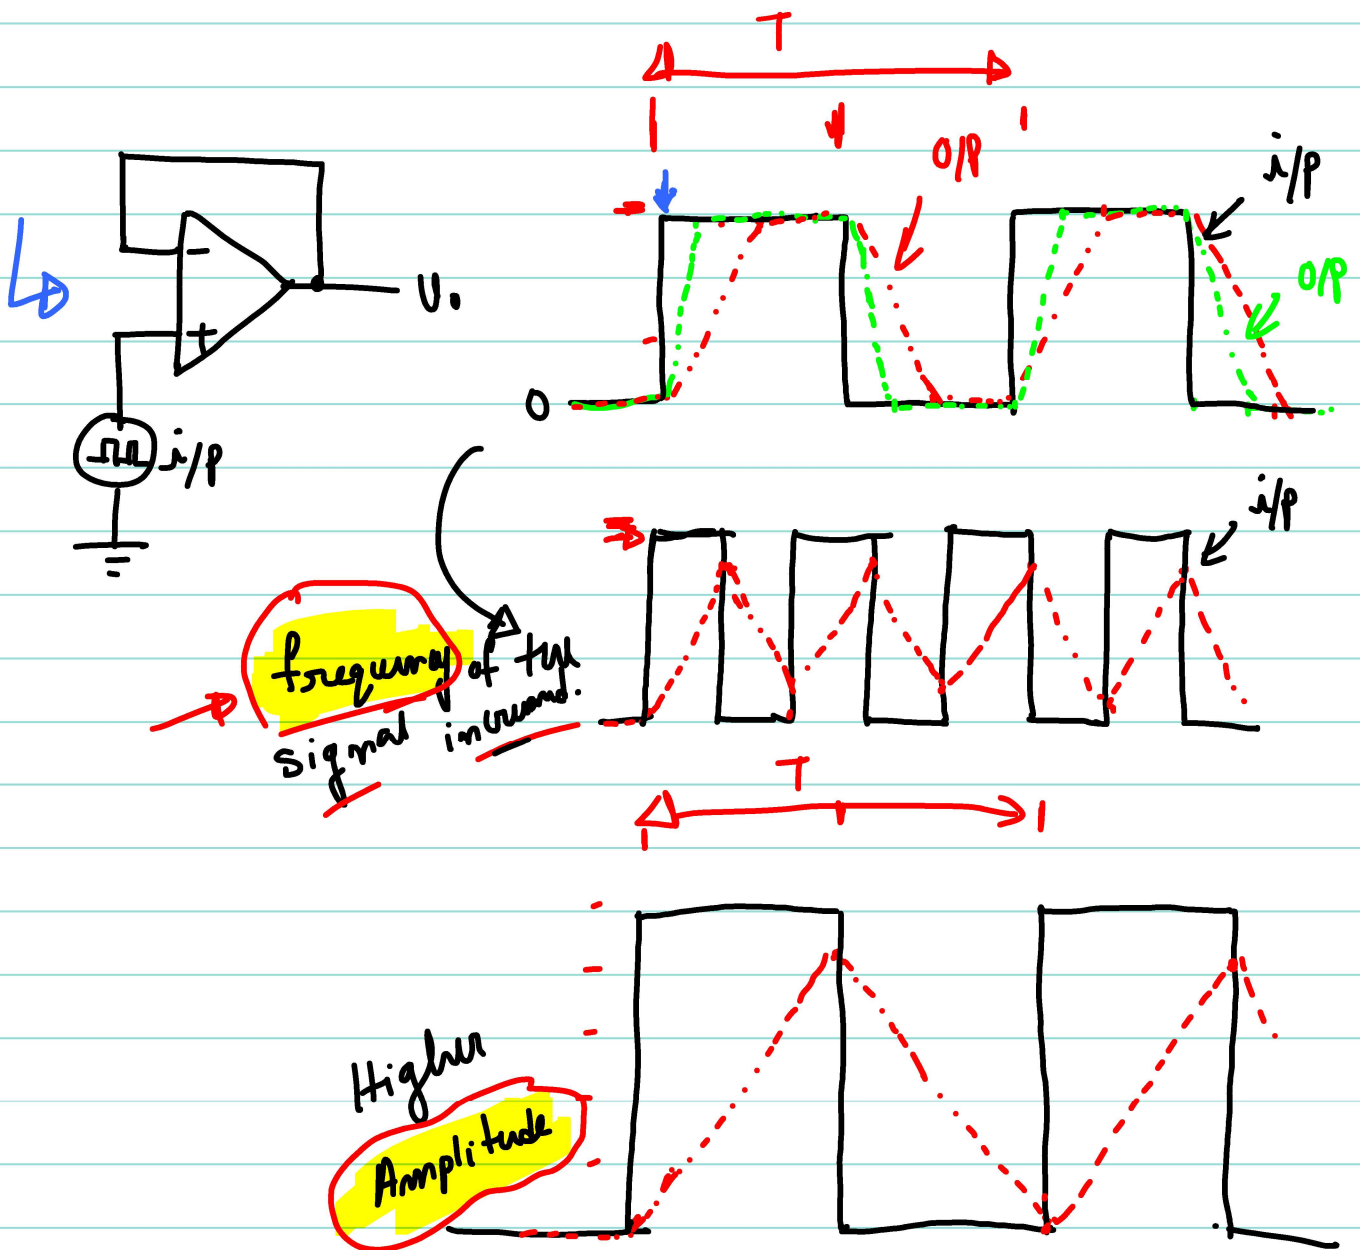 T
O/P
i/p
O/P
V.
0
i/p
i/p
frequency of the
signal increased.
T
Higher
Amplitude